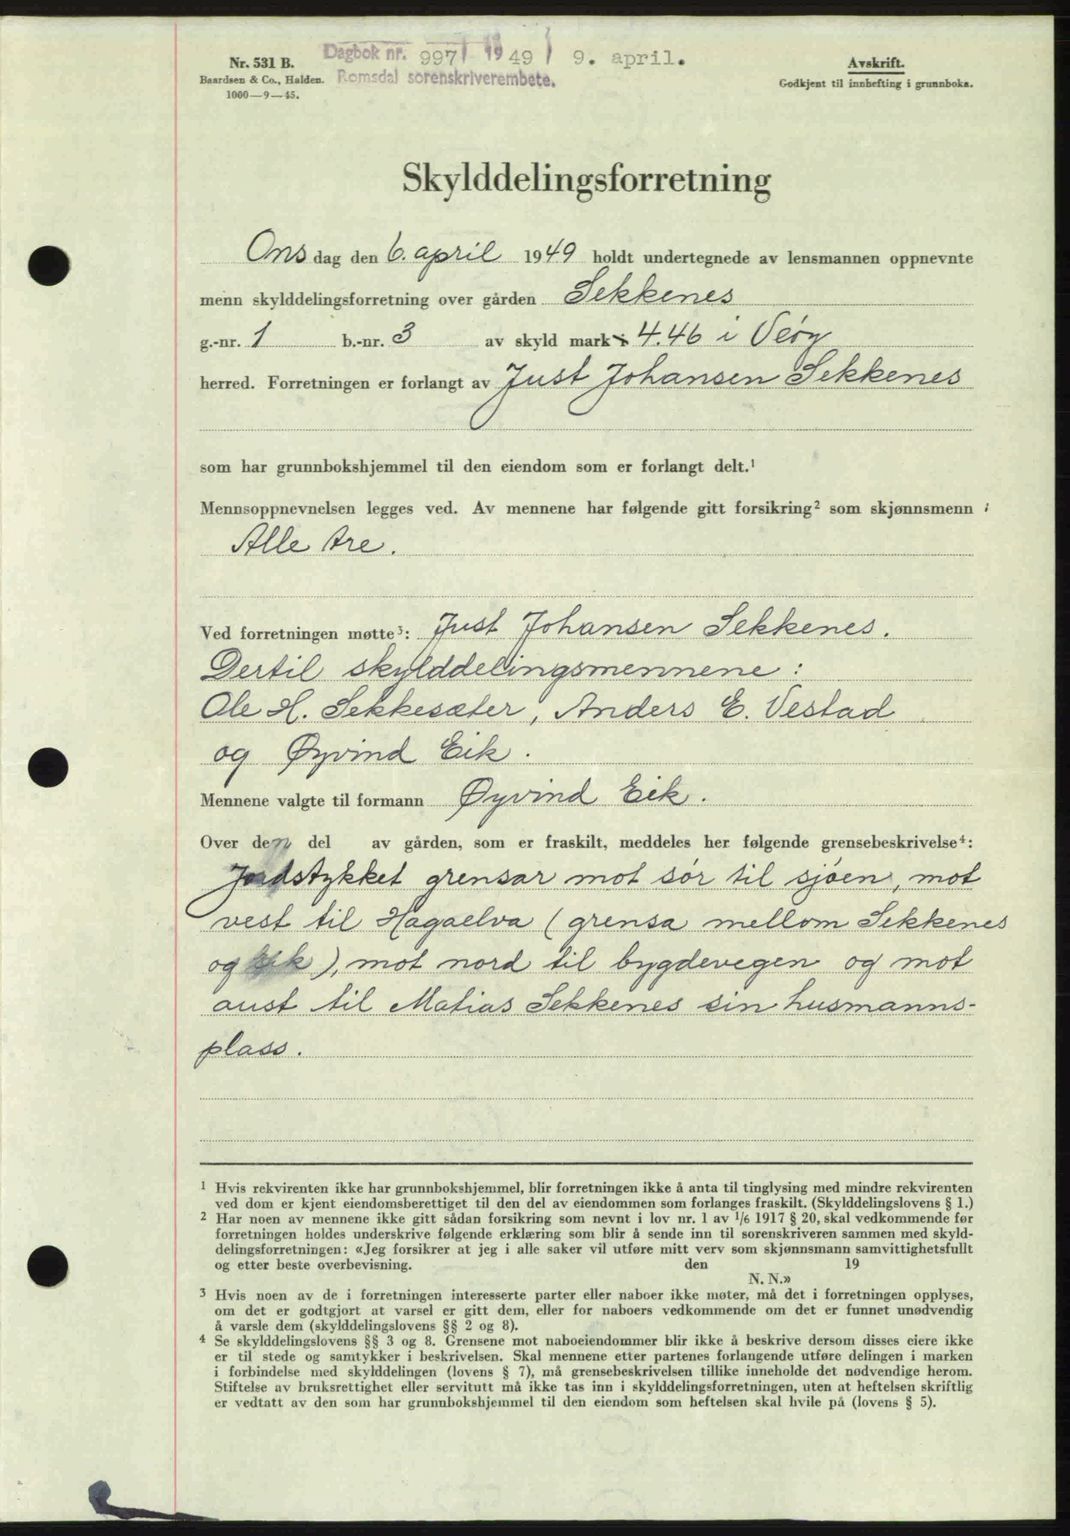 Nr. 531 B.
Baardsen & Co., Halden.
1000—9—45.
Dagbok nr. 997 1949 9. april.
Romsdal sorenskriverembete.
Avskrift.
Godkjent til innhefting i grunnboka.
Skylddelingsforretning
Onsdag den 6. april 1949 holdt undertegnede av lensmannen oppnevnte
menn skylddelingsforretning over gården Sekkenes
g.-nr. 1 b.-nr. 3 av skyld mark 4.46 i Veöy
herred. Forretningen er forlangt av Just Johansen Sekkenes
som har grunnbokshjemmel til den eiendom som er forlangt delt.¹
Mennsoppnevnelsen legges ved. Av mennene har følgende gitt forsikring² som skjønnsmenn :
Alle tre.
Ved forretningen møtte³: Just Johansen Sekkenes.
Dertil skylddelingsmennene:
Ole H. Sekkesæter, Anders E. Vestad
og Øyvind Eik.
Mennene valgte til formann Øyvind Eik.
Over den del av gården, som er fraskilt, meddeles her følgende grensebeskrivelse⁴:
Jordstykket grensar mot sör til sjöen, mot
vest til Hagaelva (grensa mellom Sekkenes
og Eik), mot nord til bygdevegen og mot
aust til Matias Sekkenes sin husmanns-
plass.
¹ Hvis rekvirenten ikke har grunnbokshjemmel, blir forretningen ikke å anta til tinglysing med mindre rekvirenten
ved dom er kjent eiendomsberettiget til den del av eiendommen som forlanges fraskilt. (Skylddelingslovens § 1.)
² Har noen av mennene ikke gitt sådan forsikring som nevnt i lov nr. 1 av 1/6 1917 § 20, skal vedkommende før
forretningen holdes underskrive følgende erklæring som blir å sende inn til sorenskriveren sammen med skyld-
delingsforretningen: «Jeg forsikrer at jeg i alle saker vil utføre mitt verv som skjønnsmann samvittighetsfullt
og etter beste overbevisning. den 19
N. N.»
³ Hvis noen av de i forretningen interesserte parter eller naboer ikke møter, må det i forretningen opplyses,
om det er godtgjort at varsel er gitt dem, eller for naboers vedkommende om det er funnet unødvendig
å varsle dem (skylddelingslovens §§ 2 og 8).
⁴ Se skylddelingslovens §§ 3 og 8. Grensene mot naboeiendommer blir ikke å beskrive dersom disses eiere ikke
er til stede og samtykker i beskrivelsen. Skal mennene etter partenes forlangende utføre delingen i marken
i forbindelse med skylddelingen (lovens § 7), må grensebeskrivelsen tillike inneholde det nødvendige herom.
Stiftelse av bruksrettighet eller servitutt må ikke tas inn i skylddelingsforretningen, uten at heftelsen skriftlig
er vedtatt av den som har grunnbokshjemmel til den eiendom som heftelsen skal hvile på (lovens § 5).